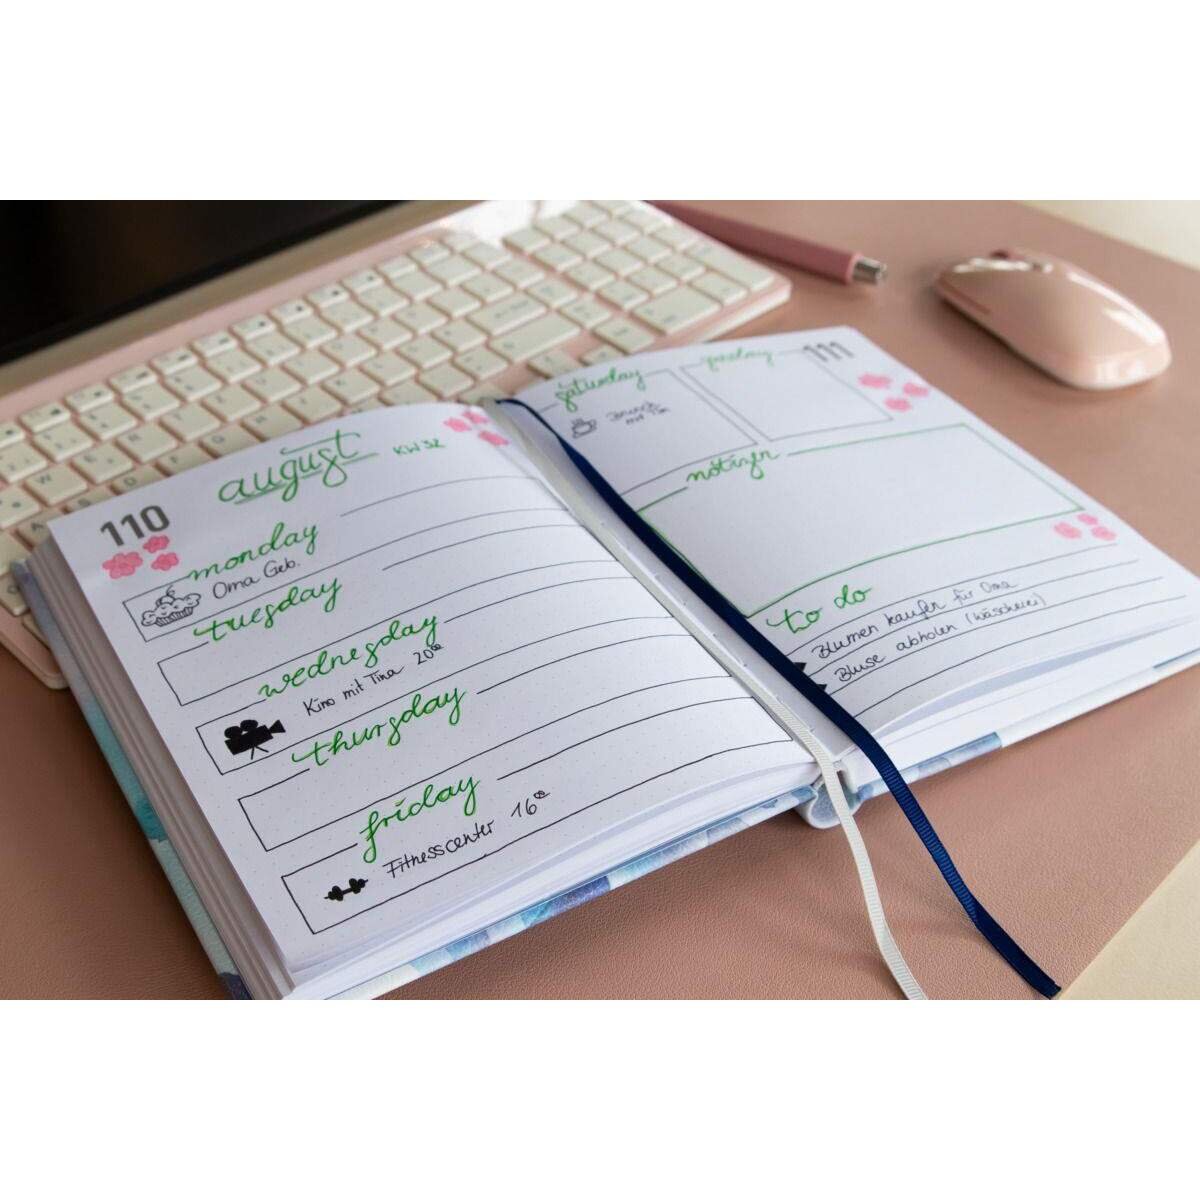 110
august KW 32
monday
Oma Geb.
tuesday
wednesday
Kino mit Tina 20⁰⁰
thursday
friday
Fitnesscenter 16⁰⁰
111
saturday
Brunch
mit Tim
sunday
notizen
to do
Blumen kaufen für Oma
Bluse abholen (Wäscherei)